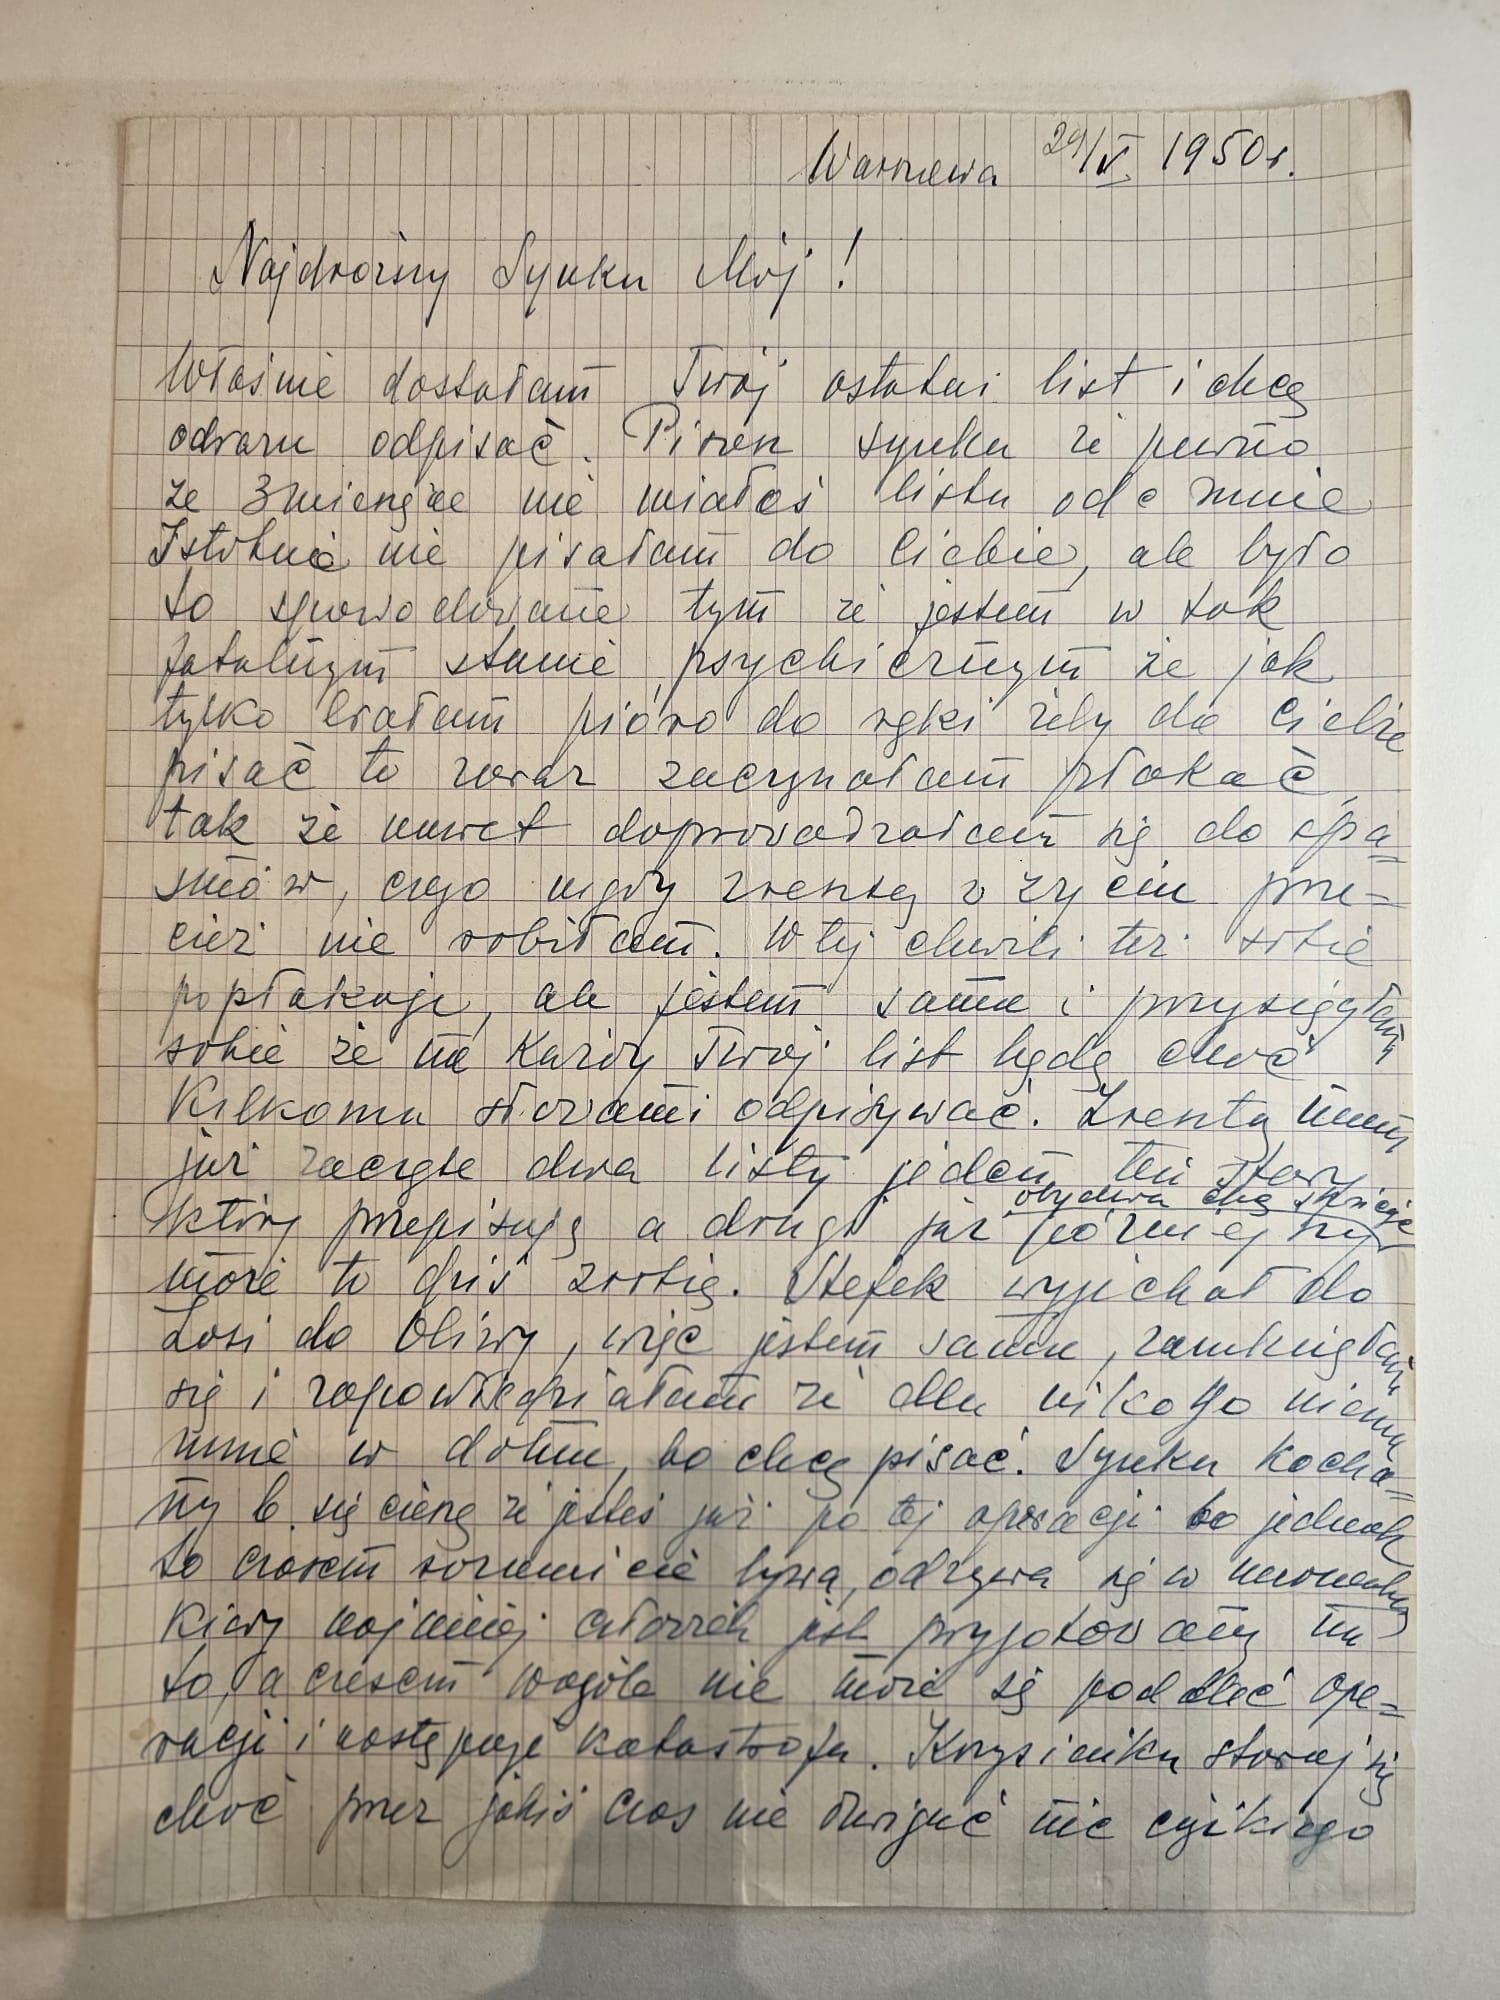 Warszawa 29/V. 1950 r.
Najdroższy Synku Mój!
Właśnie dostałam Twój ostatni list i chcę
odrazu odpisać. Piszesz synku że pewno
ze 3 miesiące nie miałeś listu ode mnie
Istotnie nie pisałam do Ciebie, ale było
to spowodowane tym że jestem w tak
fatalnym stanie psychicznym że jak
tylko brałam pióro do ręki żeby do Ciebie
pisać to zaraz zaczynałam płakać,
tak że nawet doprowadzałam się do spa=
zmów, czego nigdy zresztą w życiu prze=
cież nie robiłam. W tej chwili też sobie
popłakuję, ale jestem sama i przysięgłam
sobie że na każdy Twój list będę choć
kilkoma słowami odpisywać. Zresztą mam
już zaczęte dwa listy jeden ten stary
obydwa chcę
który przepisuję a drugi już później
może to dziś zrobię. Stefek wyjechał do
Zosi do Oliwy, więc jestem sama, zamknęłam
się i zapowiedziałam że dla nikogo niema
mnie w domu, bo chcę pisać. Synku Kocha=
ny b. się cieszę że jesteś już po tej operacji bo jednak
to czasem rozmaicie bywa, odzywa się w momentach
kiedy najmniej człowiek jest przygotowany na
to, a czasem wogóle nie może się poddać ope=
racji i następuje katastrofa. Krzysieńku staraj się
choć przez jakiś czas nie dźwigać nic ciężkiego